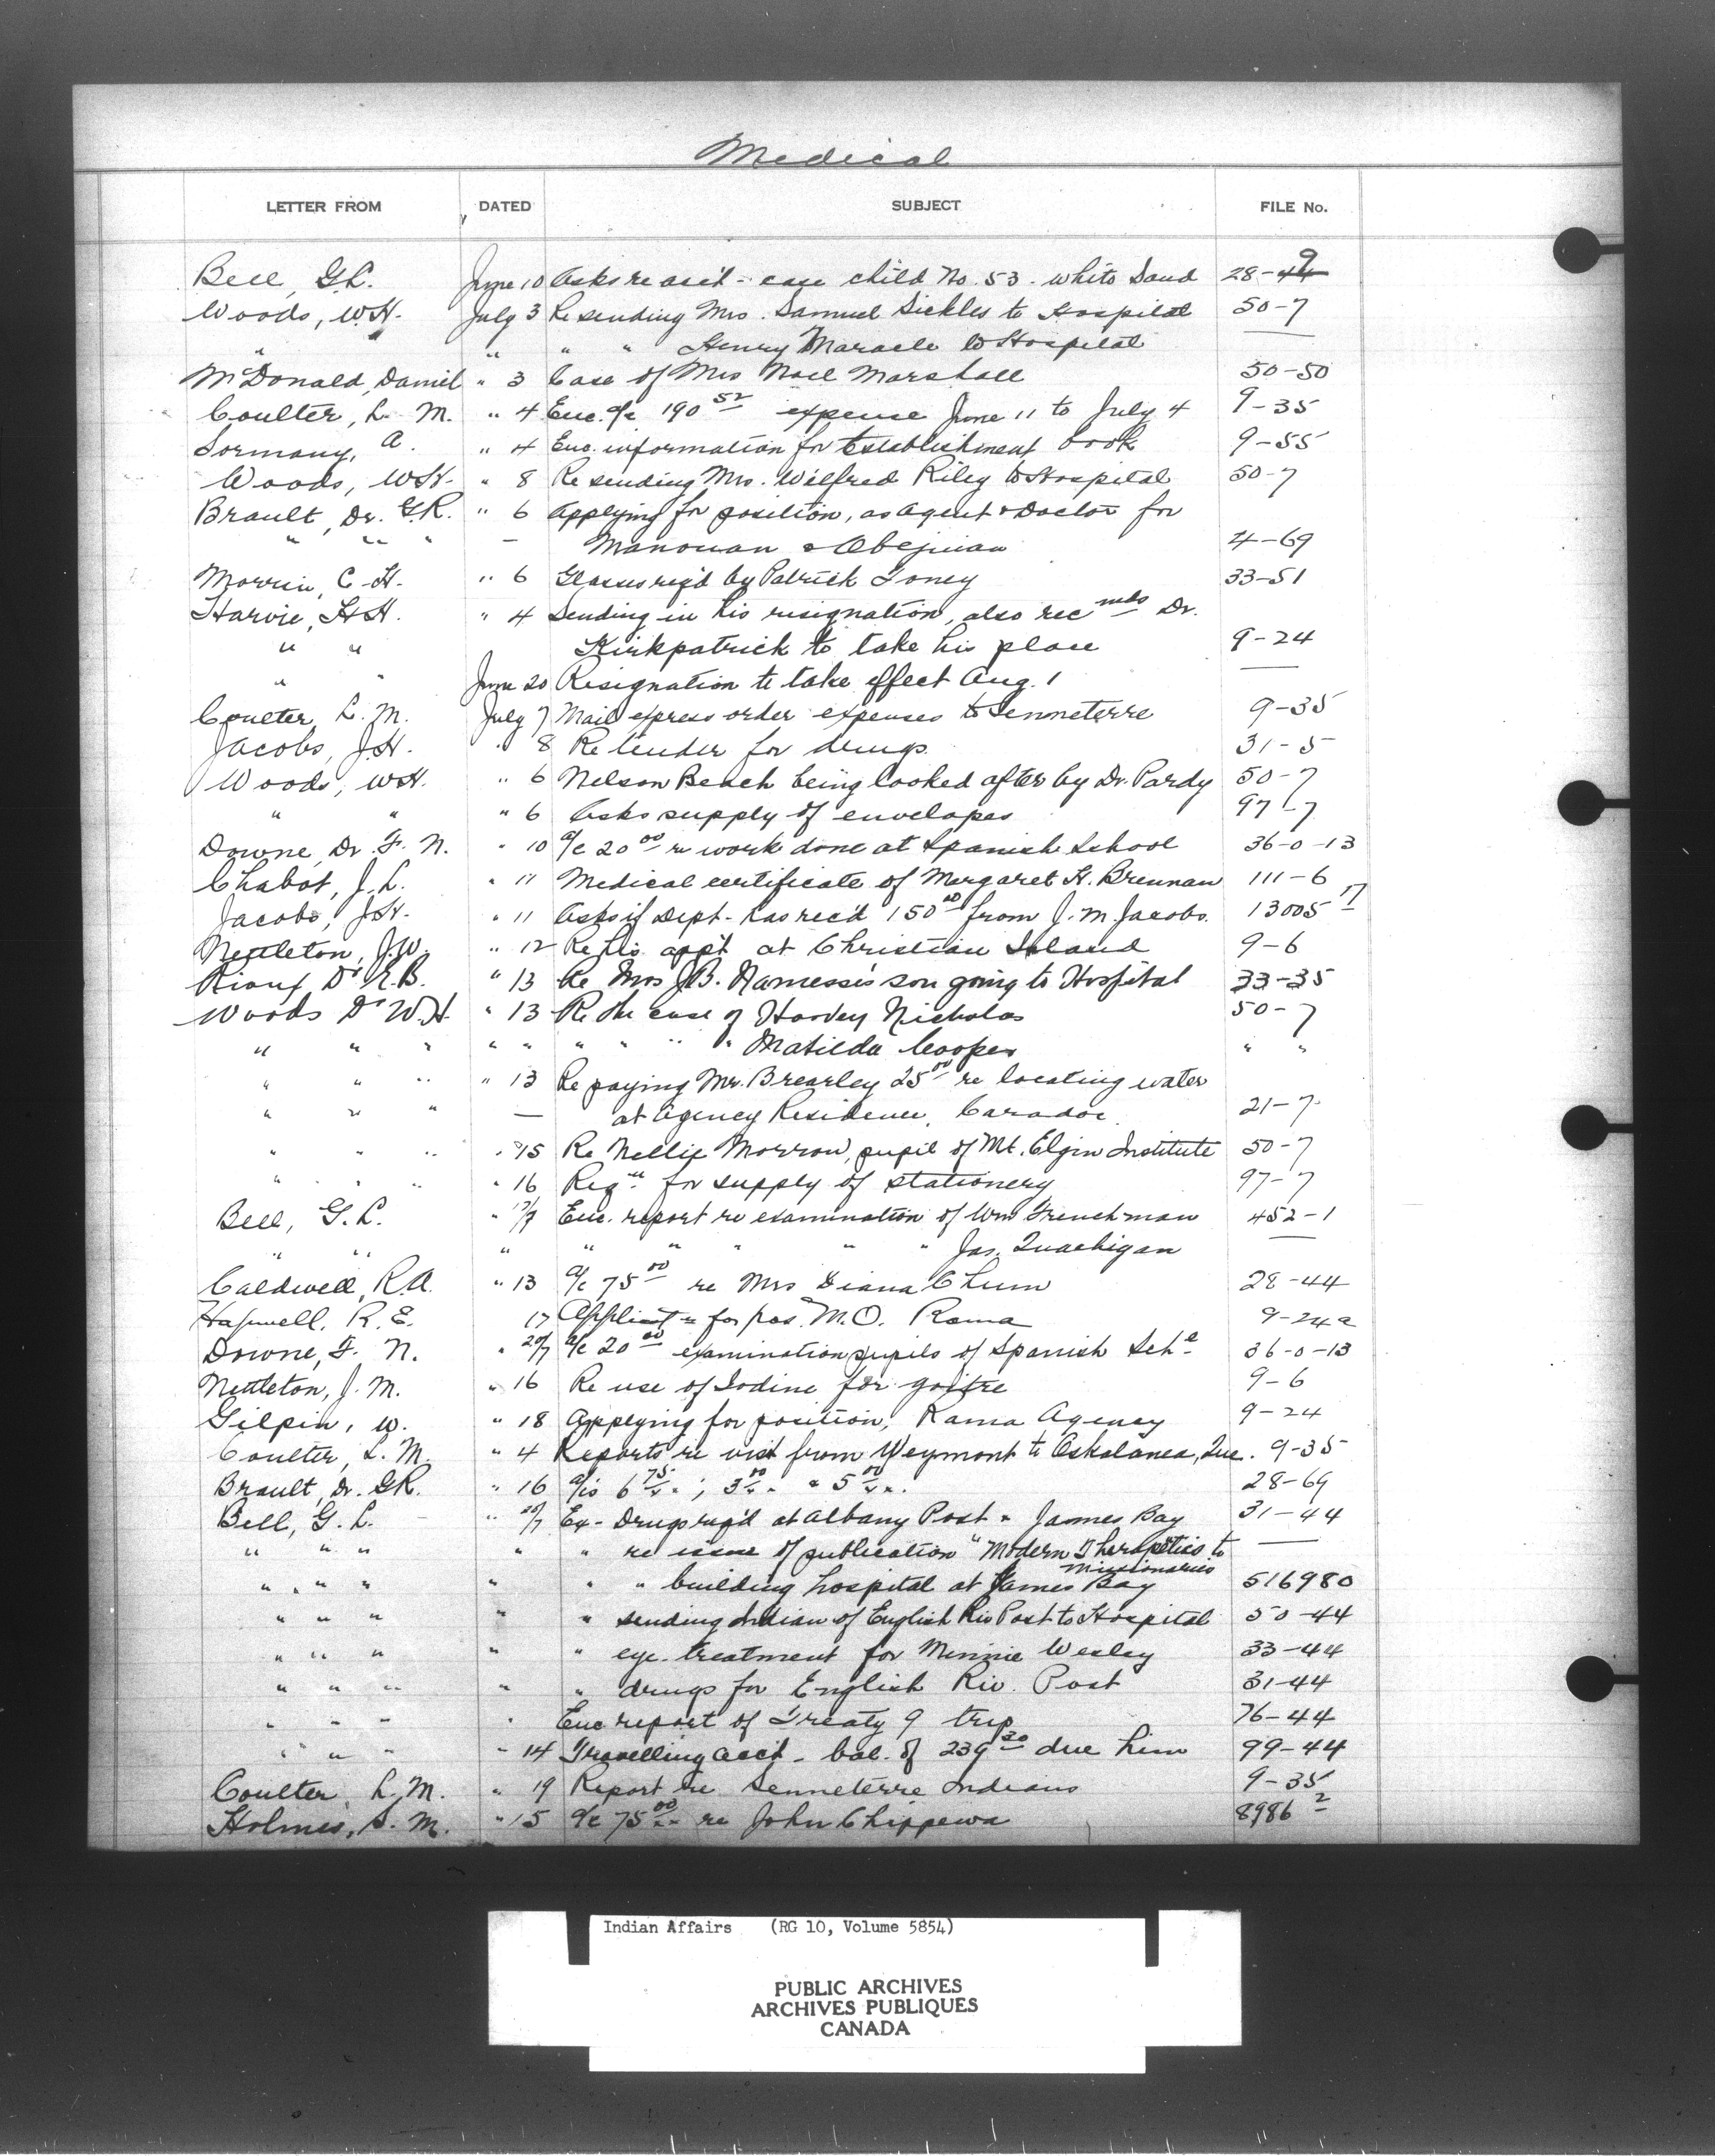 Medical
LETTER FROM DATED SUBJECT FILE No.
Bell, G.L. June 10 Asks re acc't - case child No. 53 - White Sand 28-9
Woods, W.H. July 3 Re sending Mrs. Samuel Sickles to Hospital 50-7
" " " " " Henry Maracle to Hospital —
McDonald, Daniel " 3 Case of Mrs Noel Marshall 50-50
Coulter, L. M. " 4 Enc. a/c 190 52 expense June 11 to July 4 9-35
Sormany, A. " 4 Enc. information for Establishment book 9-55
Woods, W.H. " 8 Re sending Mrs. Wilfred Riley to Hospital 50-7
Brault, Dr. G.R. " 6 Applying for position, as Agent & Doctor for
" " " — Manouan & Obejwan 4-69
Morris, C.H. " 6 Glasses req'd by Patrick Toney 33-51
Harvie, H.H. " 4 Sending in his resignation, also rec mds Dr.
" " Kirkpatrick to take his place 9-24
" " June 20 Resignation to take effect Aug. 1 —
Coulter, L. M. July 7 Mail express order expenses to Senneterre 9-35
Jacobs, J.H. " 8 Re tender for drugs 31-5
Woods, W.H. " 6 Nelson Beach being looked after by Dr. Pardy 50-7
" " " 6 Asks supply of envelopes 97-7
Downe, Dr. F. N. " 10 a/c 20 00 re work done at Spanish School 36-0-13
Chabot, J. L. " 11 Medical certificate of Margaret H. Brennan 111-6
Jacobs, J.H. " 11 Asks if Dept. has rec'd 150 00 from J. M. Jacobs. 13005 17
Nettleton, J.W. " 12 Re his app't at Christian Island 9-6
Rioux Dr L.B. " 13 Re Mrs J.B. Namessis' son going to Hospital 33-35
Woods Dr W.H. " 13 Re the case of Harvey Nicholas 50-7
" " " " " " " " " Matilda Cooper " "
" " " " 13 Re paying Mr. Brearley 25 00 re locating water
" " " — at Agency Residence, Caradoc 21-7
" " " " 15 Re Nellie Morrow, pupil of Mt. Elgin Institute 50-7
" " " " 16 Reqn for supply of stationery 97-7
Bell, G. L. " 17/7 Enc. report re examination of Wm Frenchman 452-1
" " " " " " " " Jas. Quachigan —
Caldwell, R.A. " 13 a/c 75 00 re Mrs Diana Chum 28-44
Hapwell, R. E. 17 Applicatn for pos. M.O. Rama 9-24a
Downe, F. N. " 20/7 a/c 20 00 examination pupils of Spanish Schl 36-0-13
Nettleton, J. M. " 16 Re use of Iodine for goitre 9-6
Gilpin, W. " 18 Applying for position, Rama Agency 9-24
Coulter, L. M. " 4 Reports re visit from Weymont to Oskalanea, Que. 9-35
Brault, Dr. G.R. " 16 a/cs 6 75; 3 00 & 5 00. 28-69
Bell, G. L. " 20/7 Ex- Drugs req'd at Albany Post & James Bay 31-44
" " " " " re issue of publication "Modern Therapetics to —
missionaries
" " " " " " building hospital at James Bay 516980
" " " " " sending Indian of English Riv Post to Hospital 50-44
" " " " " eye treatment for Minnie Wesley 33-44
" " " " " drugs for English Riv. Post 31-44
" " " " Enc report of Treaty 9 trip 76-44
" " " " 14 Travelling acc't - bal. of 239 30 due him 99-44
Coulter, L. M. " 19 Report re Senneterre Indians 9-35
Holmes, S. M. " 15 a/c 75 00 re John Chippewa 8986 2
Indian Affairs (RG 10, Volume 5854)
PUBLIC ARCHIVES
ARCHIVES PUBLIQUES
CANADA